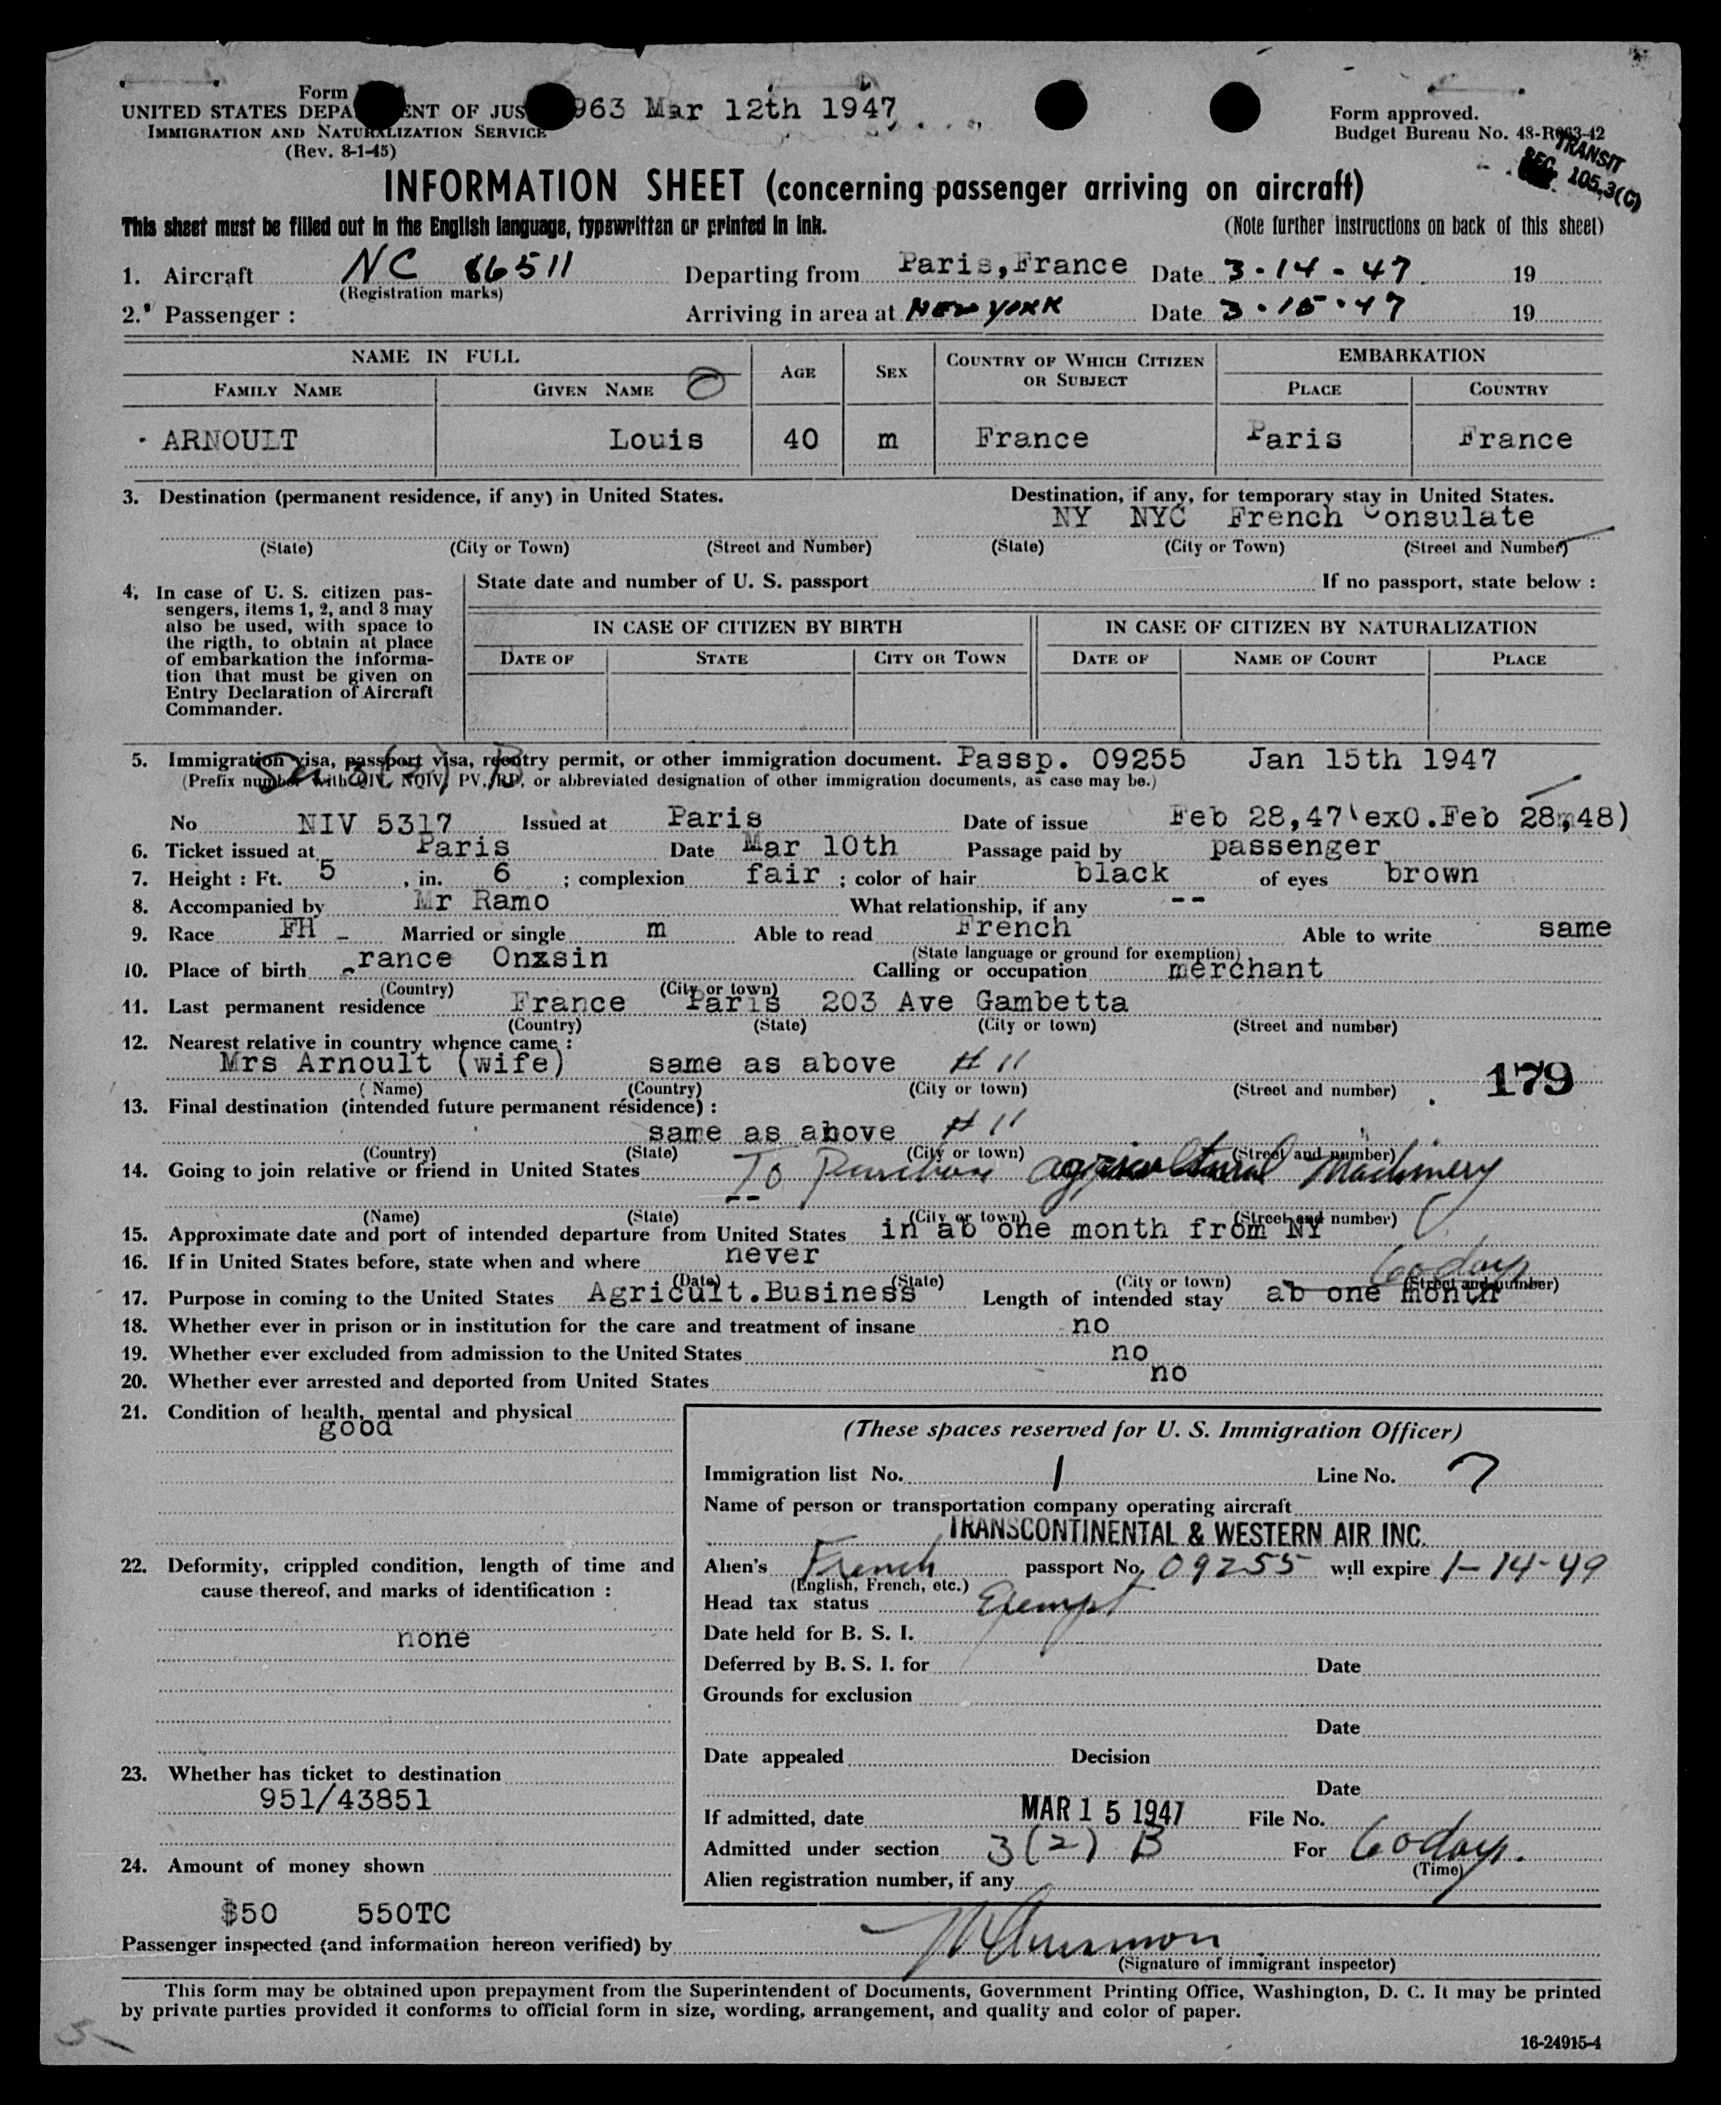 Form
UNITED STATES DEPA ENT OF JUS 963 Mar 12th 1947
IMMIGRATION AND NATURALIZATION SERVICE
(Rev. 8-1-45)
Form approved.
Budget Bureau No. 43-R063-42
TRANSIT
SEC. 105.3(C)
INFORMATION SHEET (concerning passenger arriving on aircraft)
This sheet must be filled out in the English language, typewritten or printed in ink. (Note further instructions on back of this sheet)
1. Aircraft NC 86511 Departing from Paris, France Date 3-14-47 19
(Registration marks)
2. Passenger : Arriving in area at New York Date 3-15-47 19
NAME IN FULL AGE SEX COUNTRY OF WHICH CITIZEN OR SUBJECT EMBARKATION
FAMILY NAME GIVEN NAME PLACE COUNTRY
ARNOULT Louis 40 m France Paris France
3. Destination (permanent residence, if any) in United States. Destination, if any, for temporary stay in United States.
NY NYC French Consulate
(State) (City or Town) (Street and Number) (State) (City or Town) (Street and Number)
4. In case of U. S. citizen pas-
sengers, items 1, 2, and 3 may
also be used, with space to
the rigth, to obtain at place
of embarkation the informa-
tion that must be given on
Entry Declaration of Aircraft
Commander.
State date and number of U. S. passport If no passport, state below :
IN CASE OF CITIZEN BY BIRTH IN CASE OF CITIZEN BY NATURALIZATION
DATE OF STATE CITY OR TOWN DATE OF NAME OF COURT PLACE
5. Immigration visa, passport visa, reentry permit, or other immigration document. Passp. 09255 Jan 15th 1947
3(2) B
(Prefix number with QIV, NQIV, PV, RP, or abbreviated designation of other immigration documents, as case may be.)
No NIV 5317 Issued at Paris Date of issue Feb 28,47(ex0.Feb 28,48)
6. Ticket issued at Paris Date Mar 10th Passage paid by passenger
7. Height : Ft. 5 , in. 6 ; complexion fair ; color of hair black of eyes brown
8. Accompanied by Mr Ramo What relationship, if any --
9. Race FH - Married or single m Able to read French Able to write same
(State language or ground for exemption)
10. Place of birth France Onxsin Calling or occupation merchant
(Country) (City or town)
11. Last permanent residence France Paris 203 Ave Gambetta
(Country) (State) (City or town) (Street and number)
12. Nearest relative in country whence came :
Mrs Arnoult (wife) same as above # 11
(Name) (Country) (City or town) (Street and number)
179
13. Final destination (intended future permanent résidence) :
same as above # 11
(Country) (State) (City or town) (Street and number)
14. Going to join relative or friend in United States To purchase agricultural Machinery
--
(Name) (State) (City or town) (Street and number)
15. Approximate date and port of intended departure from United States in ab one month from NY
16. If in United States before, state when and where never
60 days
(Date) (State) (City or town) (Street and number)
17. Purpose in coming to the United States Agricult.Business Length of intended stay ab one month
18. Whether ever in prison or in institution for the care and treatment of insane no
19. Whether ever excluded from admission to the United States no
20. Whether ever arrested and deported from United States no
21. Condition of health, mental and physical
good
22. Deformity, crippled condition, length of time and
cause thereof, and marks of identification :
none
23. Whether has ticket to destination
951/43851
24. Amount of money shown
$50 550TC
(These spaces reserved for U. S. Immigration Officer)
Immigration list No. 1 Line No. 7
Name of person or transportation company operating aircraft
TRANSCONTINENTAL & WESTERN AIR INC.
Alien's French passport No. 09255 will expire 1-14-49
(English, French, etc.)
Head tax status Exempt
Date held for B. S. I.
Deferred by B. S. I. for Date
Grounds for exclusion
Date
Date appealed Decision
Date
If admitted, date MAR 15 1947 File No.
Admitted under section 3(2) B For 60 days.
(Time)
Alien registration number, if any
Passenger inspected (and information hereon verified) by
(Signature of immigrant inspector)
This form may be obtained upon prepayment from the Superintendent of Documents, Government Printing Office, Washington, D. C. It may be printed
by private parties provided it conforms to official form in size, wording, arrangement, and quality and color of paper.
16-24915-4